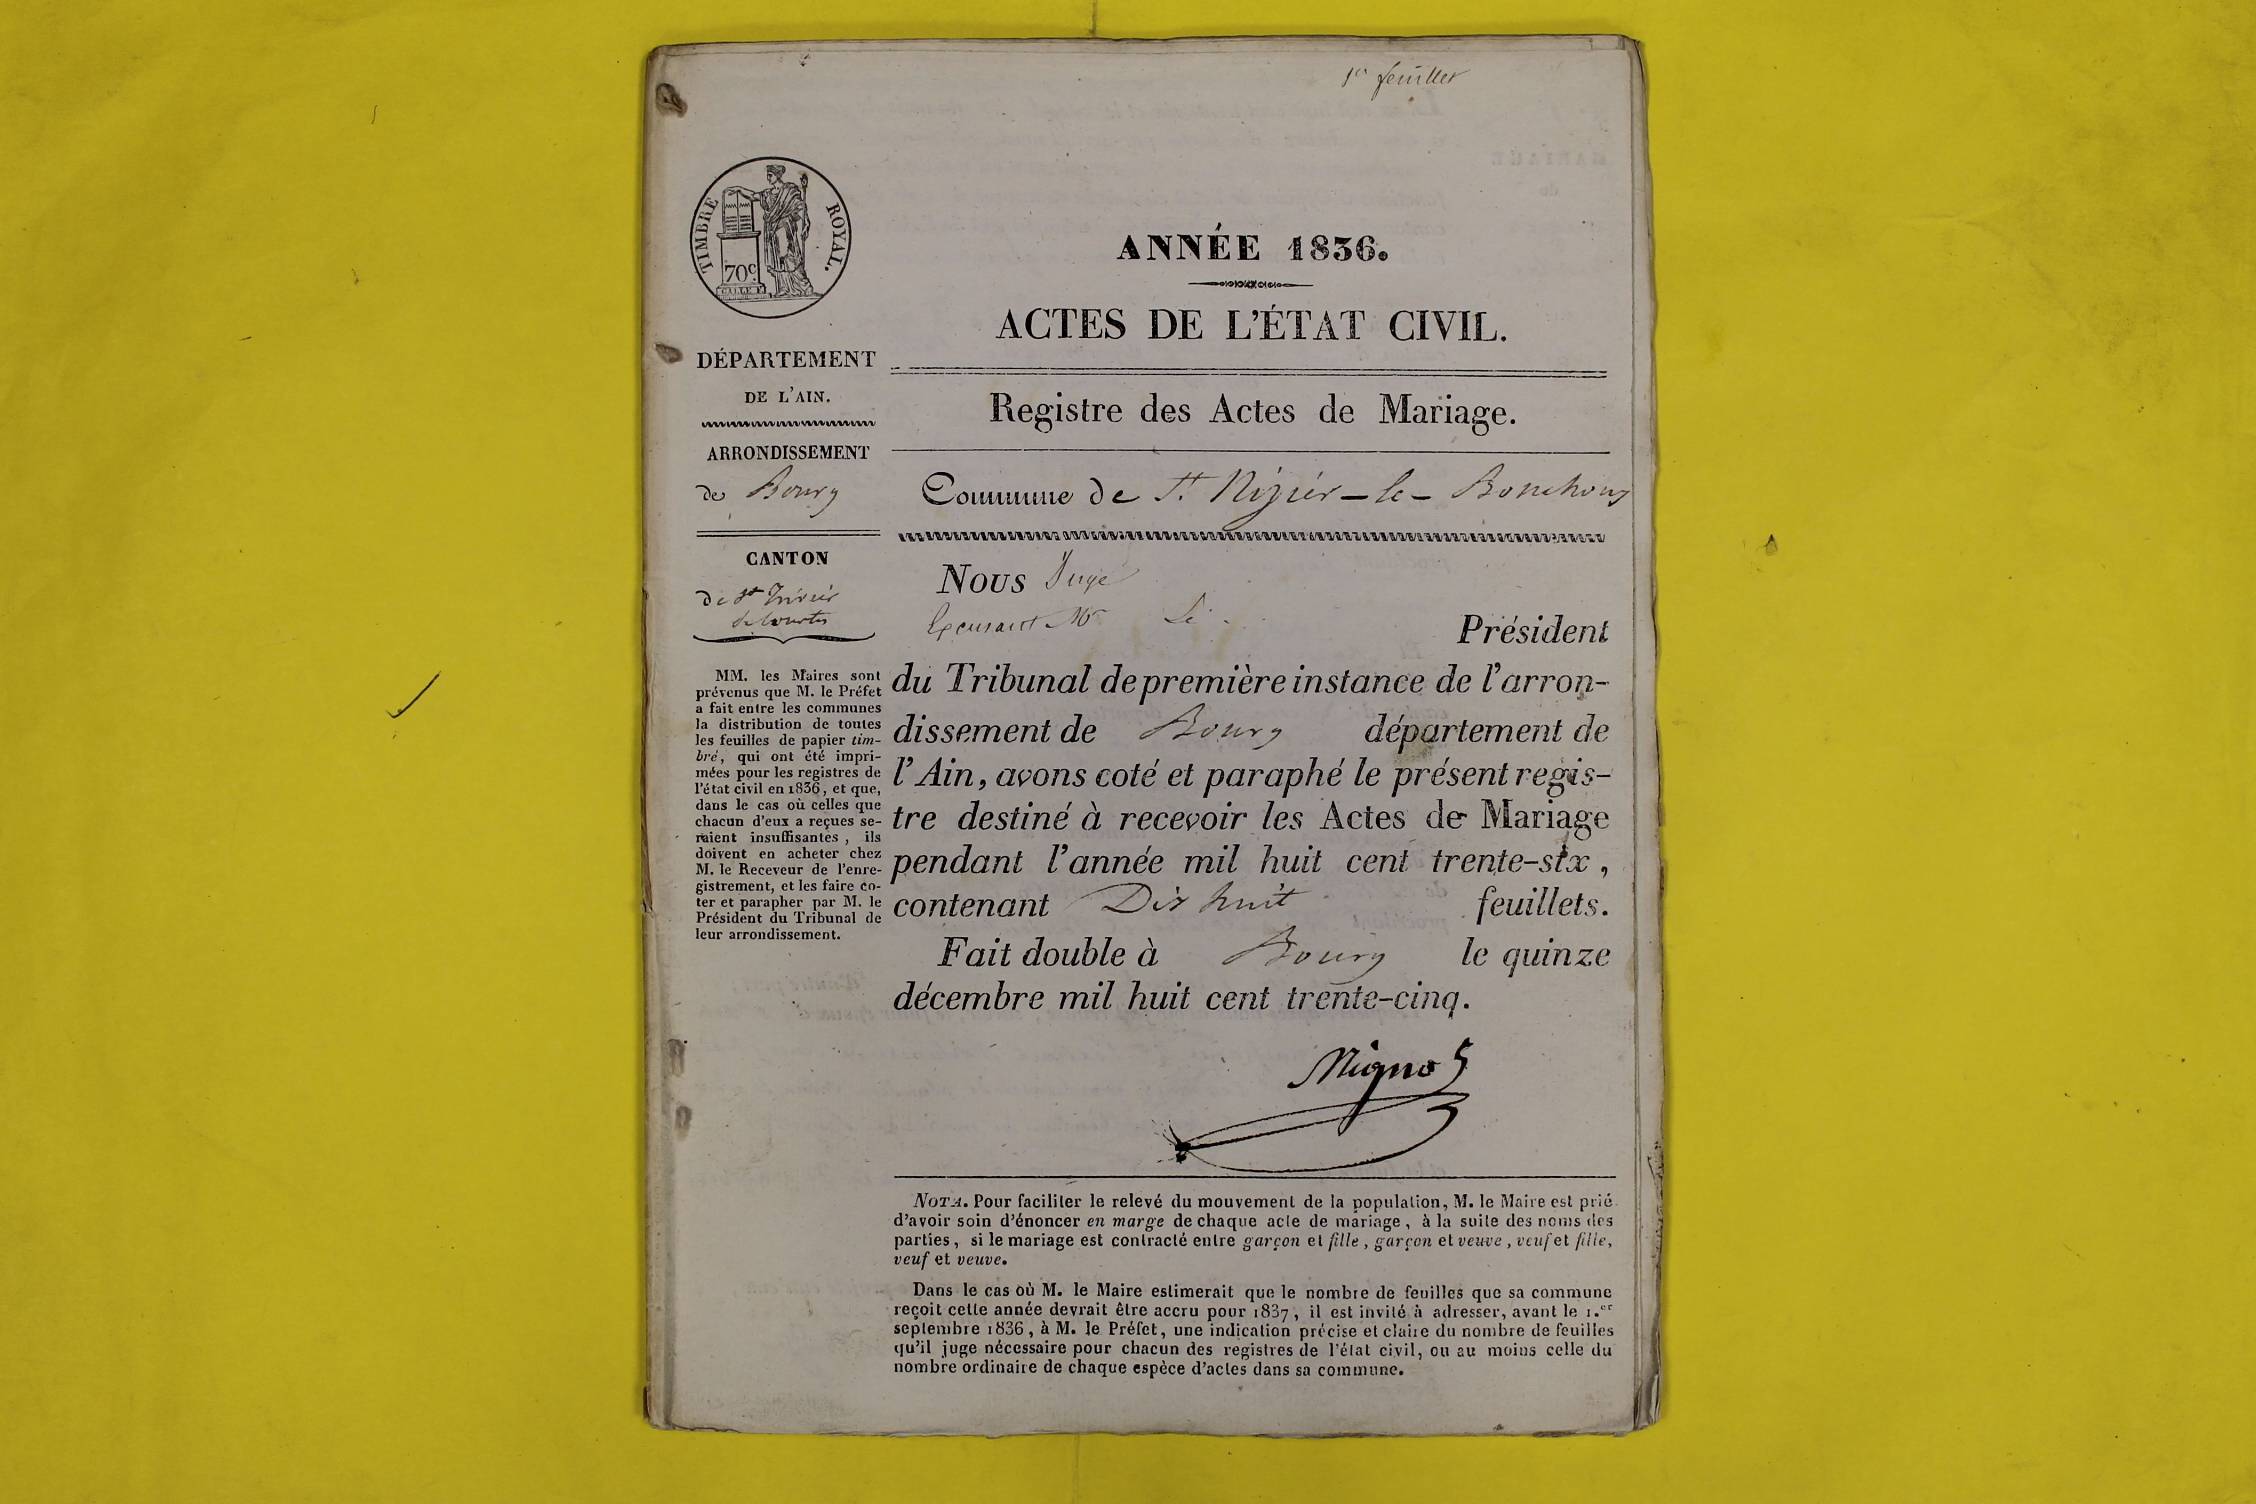 1er feuillet
TIMBRE ROYAL.
70c.
ANNÉE 1836.
ACTES DE L'ÉTAT CIVIL.
Registre des Actes de Mariage.
Commune de St Nizier-le-Bouchoux
DÉPARTEMENT
DE L'AIN.
ARRONDISSEMENT
de Bourg
CANTON
de St Trivier
de Courtes
MM. les Maires sont
prévenus que M. le Préfet
a fait entre les communes
la distribution de toutes
les feuilles de papier tim-
bré, qui ont été impri-
mées pour les registres de
l'état civil en 1836, et que,
dans le cas où celles que
chacun d'eux a reçues se-
raient insuffisantes, ils
doivent en acheter chez
M. le Receveur de l'enre-
gistrement, et les faire co-
ter et parapher par M. le
Président du Tribunal de
leur arrondissement.
Nous Juge
Mr Le Président
du Tribunal de première instance de l'arron-
dissement de Bourg département de
l'Ain, avons coté et paraphé le présent regis-
tre destiné à recevoir les Actes de Mariage
pendant l'année mil huit cent trente-six,
contenant Dix huit feuillets.
Fait double à Bourg le quinze
décembre mil huit cent trente-cinq.
NOTA. Pour faciliter le relevé du mouvement de la population, M. le Maire est prié
d'avoir soin d'énoncer en marge de chaque acte de mariage, à la suite des noms des
parties, si le mariage est contracté entre garçon et fille, garçon et veuve, veuf et fille,
veuf et veuve.
Dans le cas où M. le Maire estimerait que le nombre de feuilles que sa commune
reçoit cette année devrait être accru pour 1837, il est invité à adresser, avant le 1.er
septembre 1836, à M. le Préfet, une indication précise et claire du nombre de feuilles
qu'il juge nécessaire pour chacun des registres de l'état civil, ou au moins celle du
nombre ordinaire de chaque espèce d'actes dans sa commune.